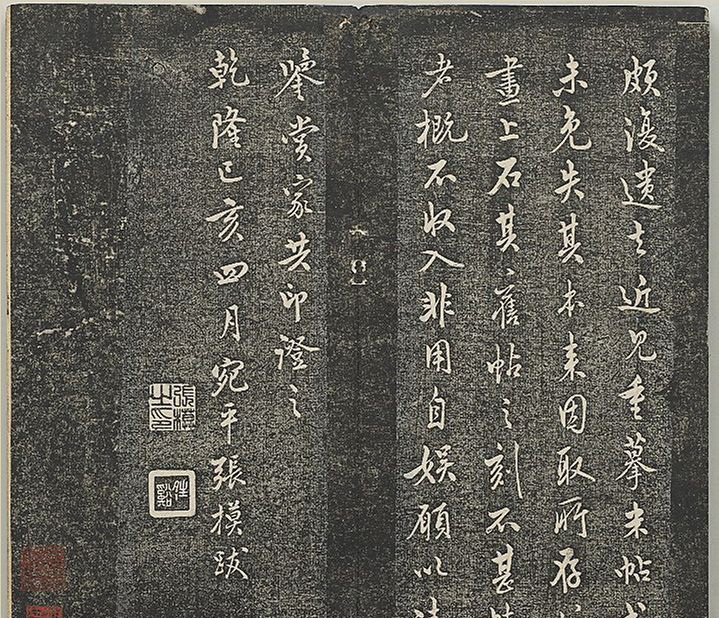 頗復遺去近見重摹米帖
未免失其本來因取所存
畫上石其〻舊帖之刻不甚
者概不收入非用自娛願以
鑒賞家共印證之
乾隆己亥四月宛平張模跋
張模之印